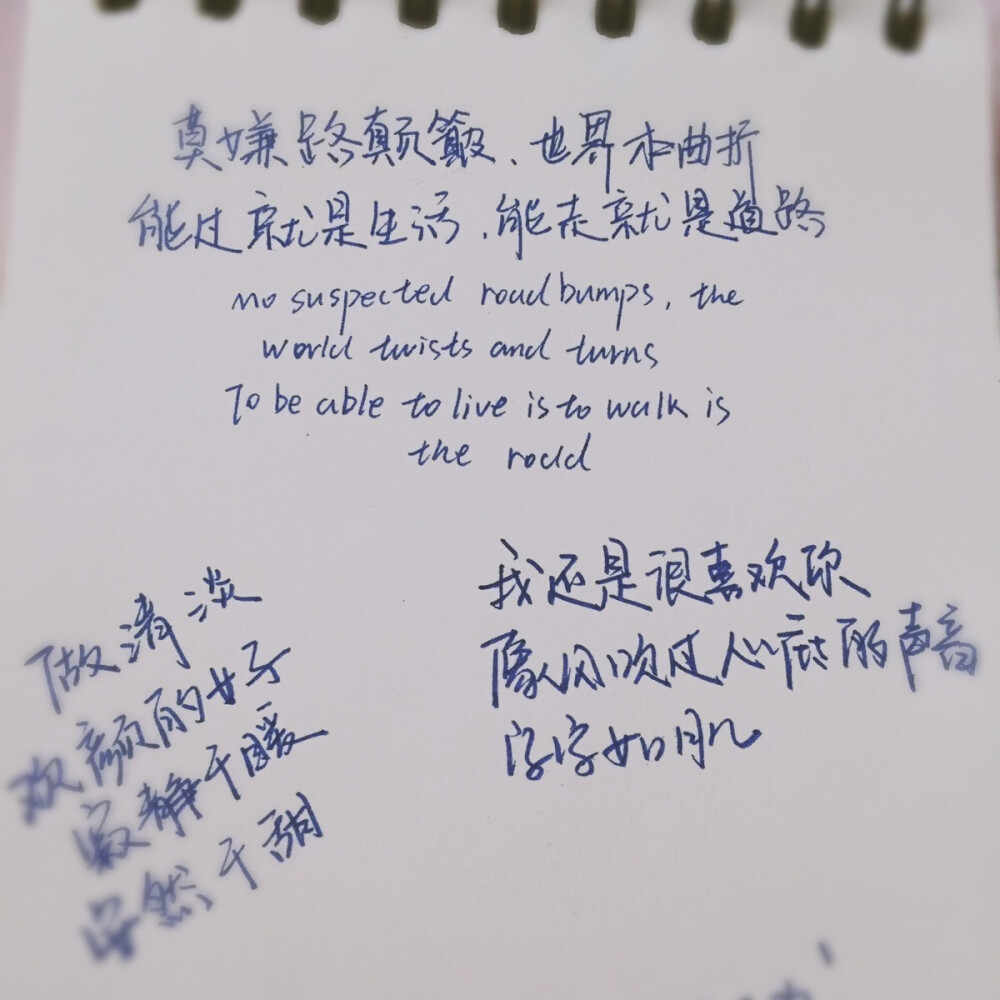 莫嫌路颠簸、世界本曲折
能过就是生活、能走就是道路
no suspected road bumps, the
world twists and turns
To be able to live is to walk is
the road
我还是很喜欢你
像风吹过心底的声音
字字如肌
做清淡
欢颜的女子
寂静于暖
安然于甜